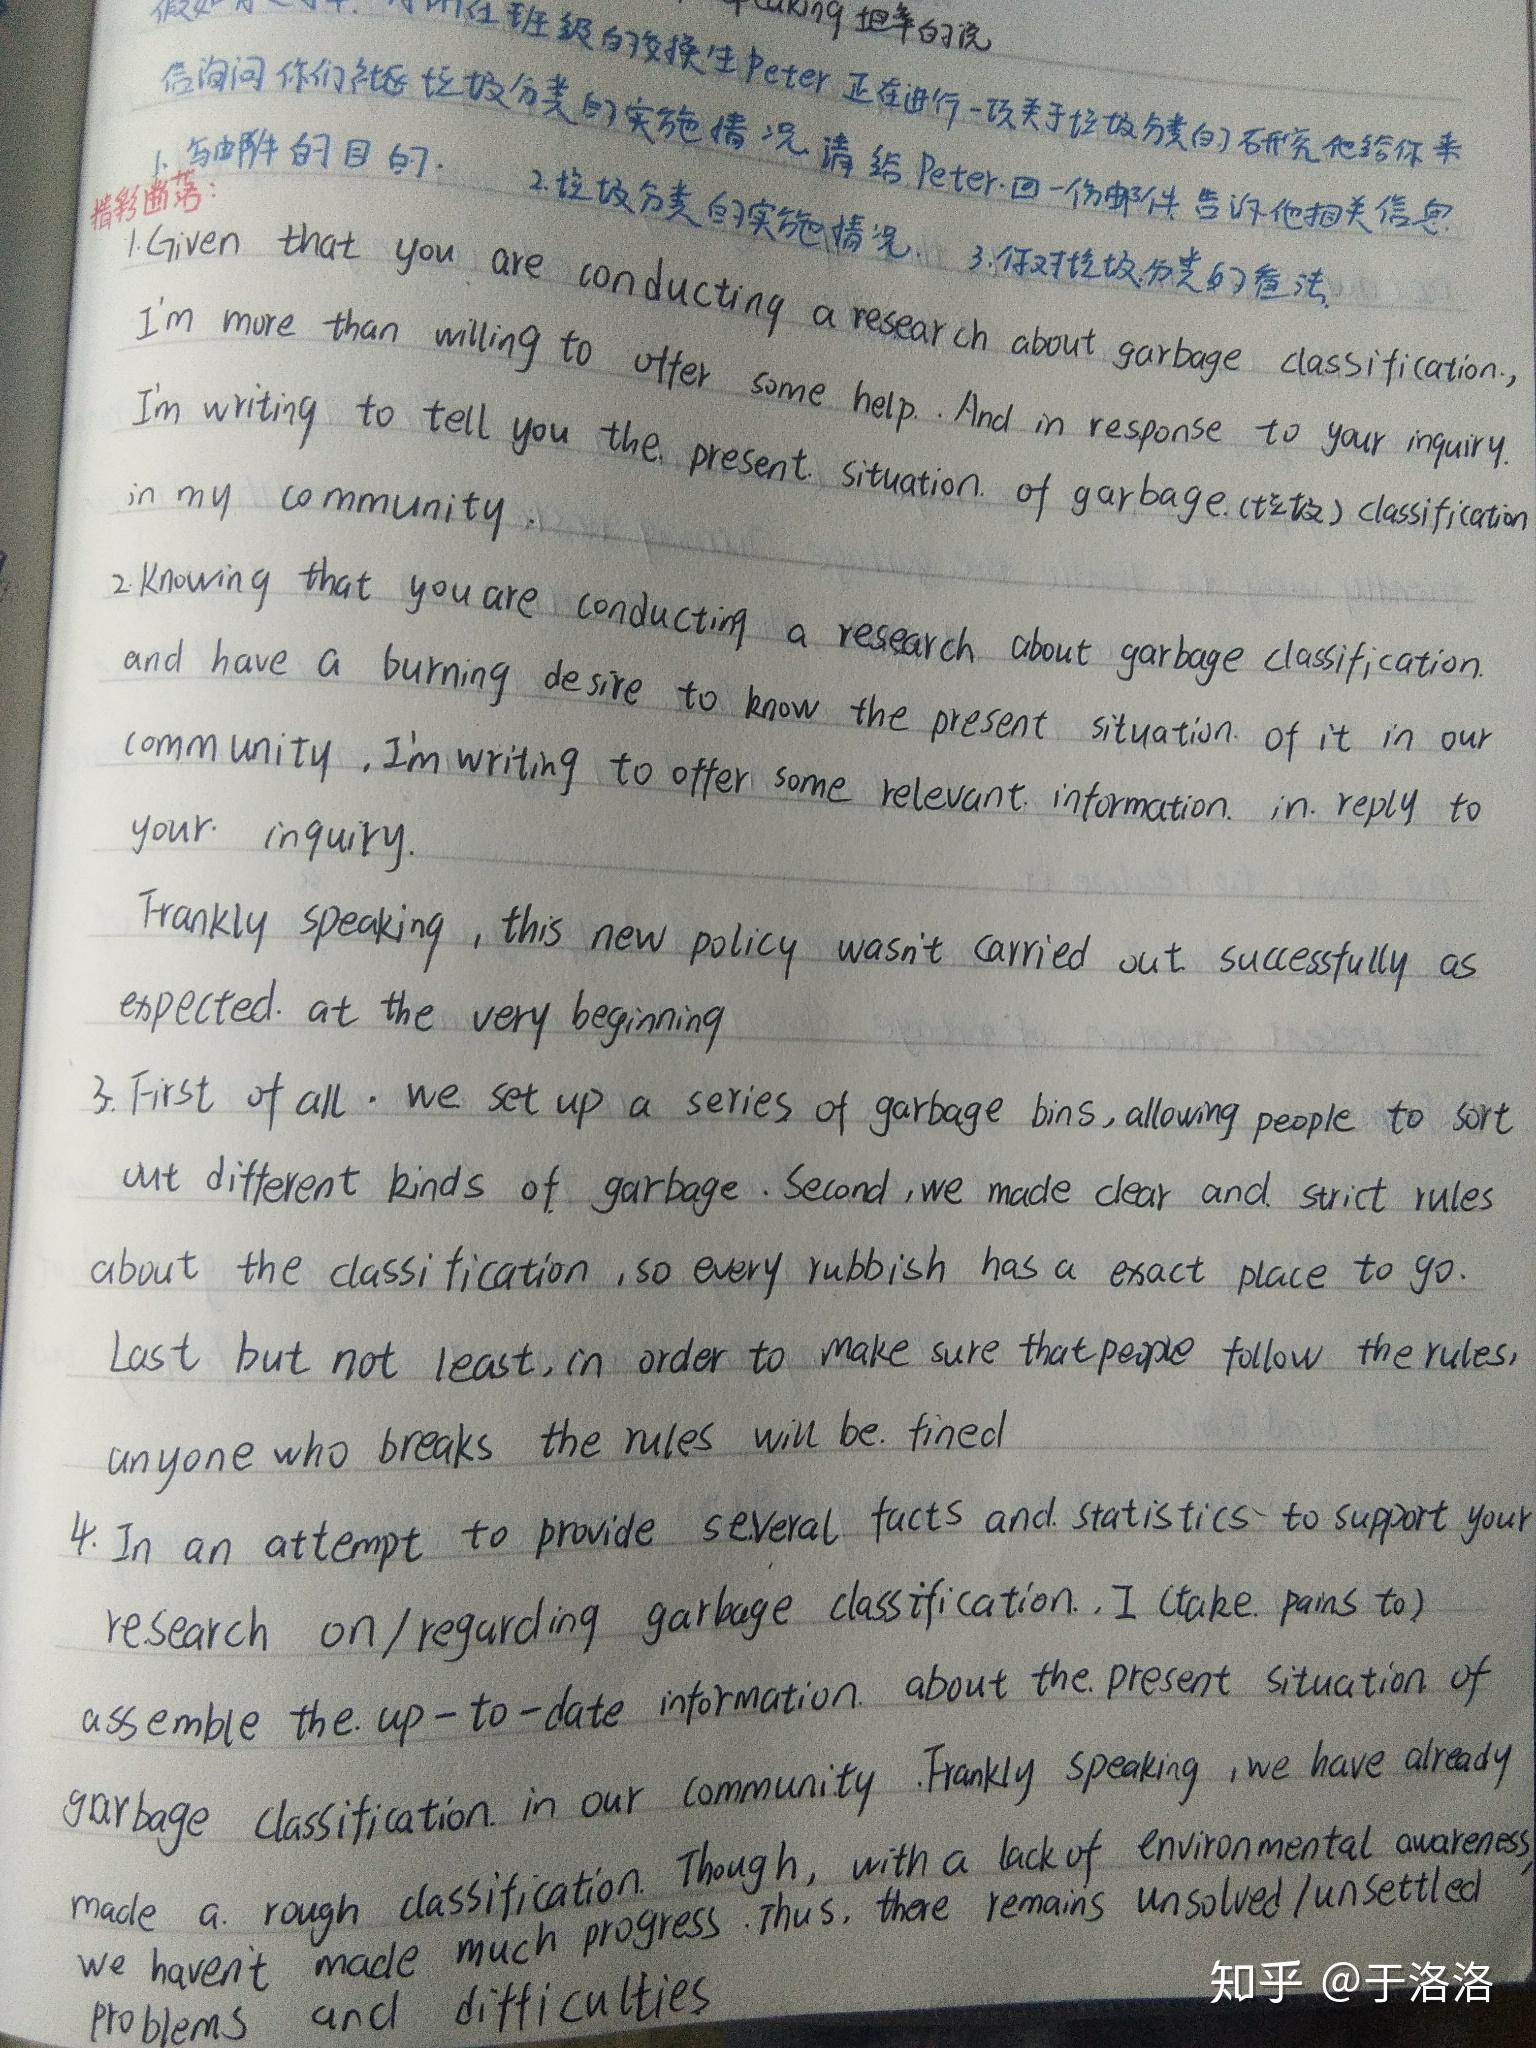 speaking 坦率的说
班级的交换生Peter 正在进行一项关于垃圾分类的研究他给你来
信询问你们社区垃圾分类的实施情况.请给Peter.回一份邮件告诉他相关信息
1.写邮件的目的. 2.垃圾分类的实施情况. 3.你对垃圾分类的看法.
精彩断落:
1.Given that you are conducting a research about garbage classification.,
I'm more than willing to offer some help. And in response to your inquiry.
I'm writing to tell you the present situation of garbage.(垃圾) classification
in my community.
2.Knowing that you are conducting a research about garbage classification.
and have a burning desire to know the present situation of it in our
community, I'm writing to offer some relevant information in reply to
your inquiry.
Frankly speaking, this new policy wasn't carried out successfully as
expected. at the very beginning
3. First of all. we set up a series of garbage bins, allowing people to sort
out different kinds of garbage. Second, we made clear and strict rules
about the classification, so every rubbish has a exact place to go.
Last but not least, in order to make sure that people follow the rules,
anyone who breaks the rules will be fined
4. In an attempt to provide several facts and statistics to support your
research on/regarding garbage classification., I (take pains to)
assemble the up-to-date information about the present situation of
garbage classification in our community. Frankly speaking, we have already
made a rough classification. Though, with a lack of environmental awareness,
we haven't made much progress. Thus, there remains unsolved/unsettled
problems and difficulties
知乎 @于洛洛